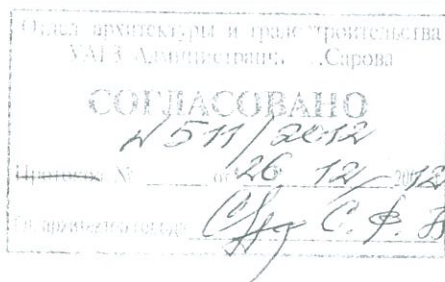 Отдел архитектуры и градостроительства
УАГЗ Администрации г. Сарова
СОГЛАСОВАНО
№ 511/2012
Протокол № от 26 12 2012
Гл. архитектор города С. Ф. В